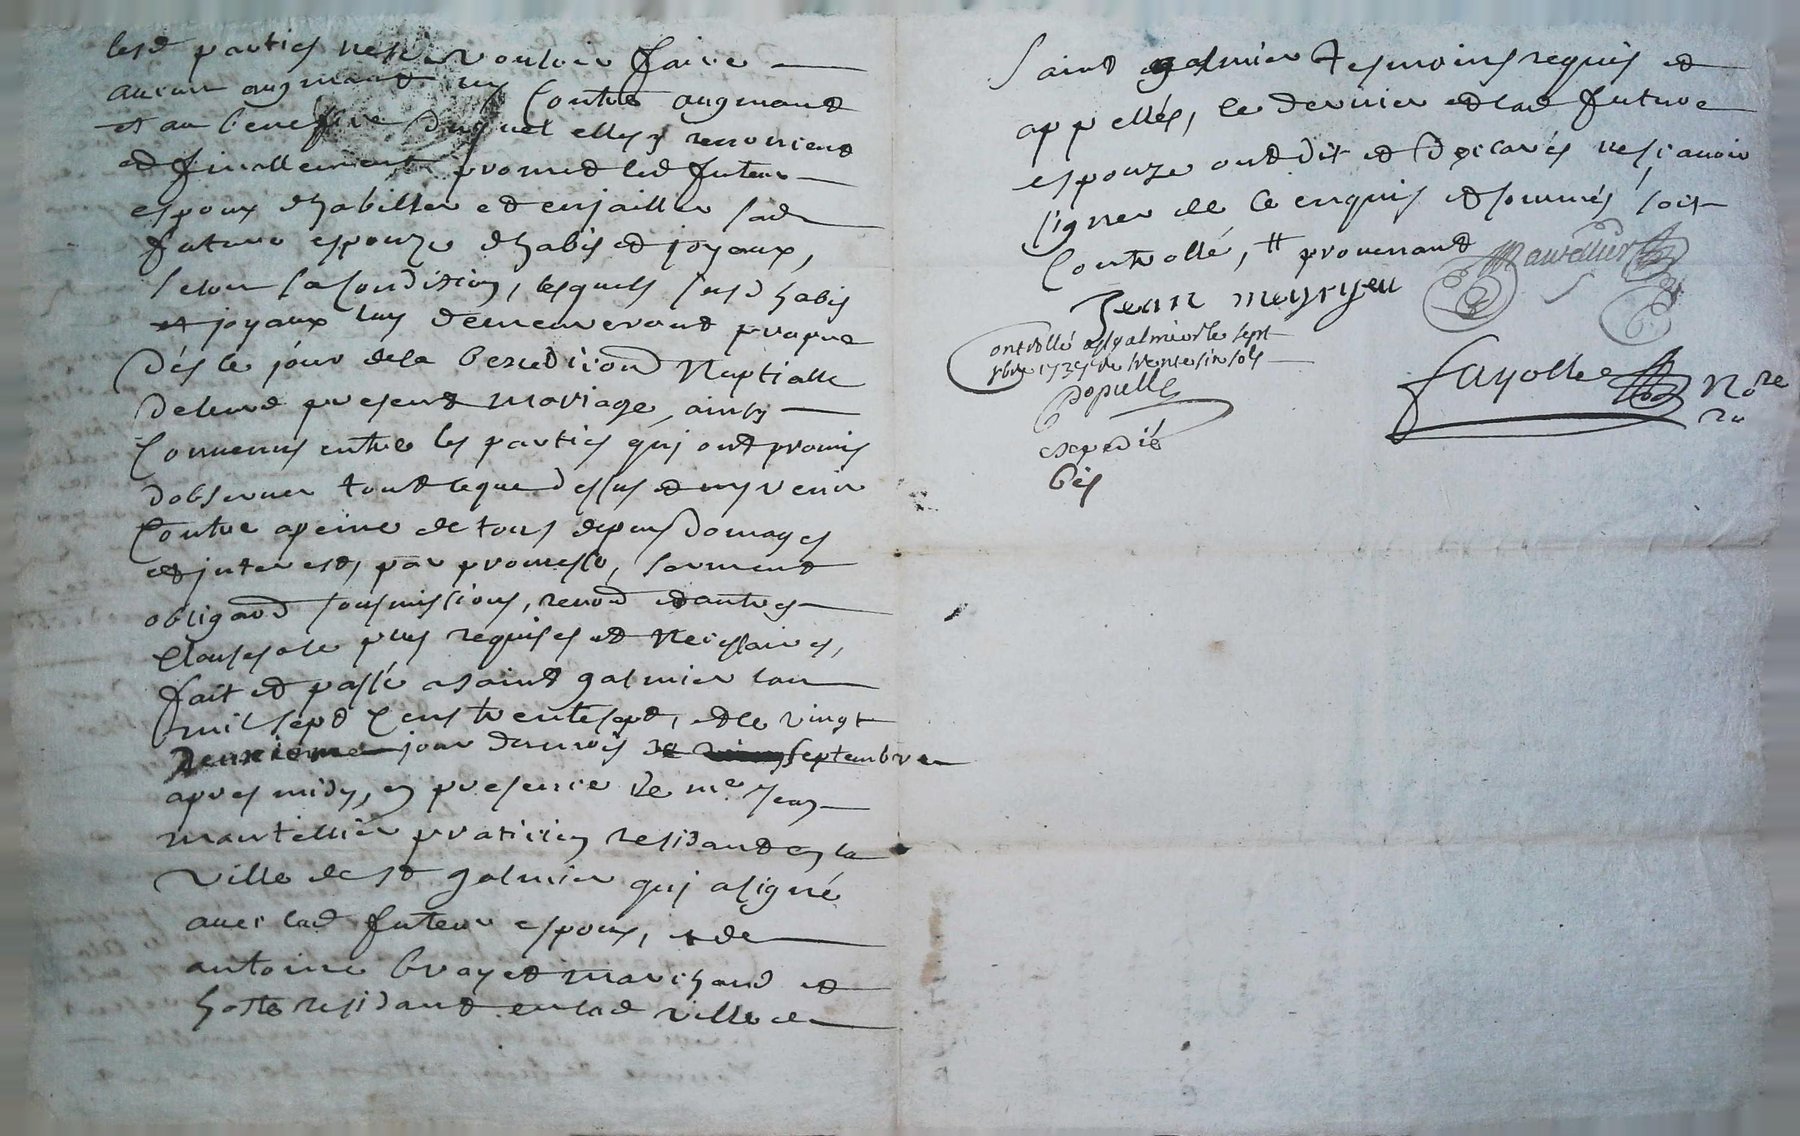 lesd parties ne si vouloir faire
aucun augmand ny Contre augmand
et au benefice duquel elles y renoncent
et finallement promet led futeur
espoux dhabiller et enjailler lad
future espouze dhabis et joyaux,
selon sa condition, lesquels susd habis
et joyaux luy demeureront propre
dés le jour dela benediciond Nuptialle
deleurd present mariage, ainsy
Convenus entre les parties quj ont promis
dobserver tout leque dessus et ny venir
Contre apeine de tous depens domages
et jnterest, par promesse, serment
obligaod sousmissions, renod et autres
Clauses ole plus requises et Necessaires,
fait et passé a saint galmier lan
mil sept Cens trente sept, et le vingt
Deuxieme jour du mois de septembre
apres midy, en presence de me Jean
mantellier praticien residand en la
ville de st galmier quj a signé
avec led futeur espoux, et de
antoine brayet marchand et
hoste residant en lad ville de
saint galmier Tesmoins requis et
appellés, le dernier et lad future
espouze ont dit et Declarés ne sçavoir
signer de Ce enquis et sommés, soit
Controllé, tt provenant
Jean meyryeu
Controllé a st galmier le sept
8bre 1737 Re trente six sols
Depulle
expedié
bis
fayolle Nore
Ra